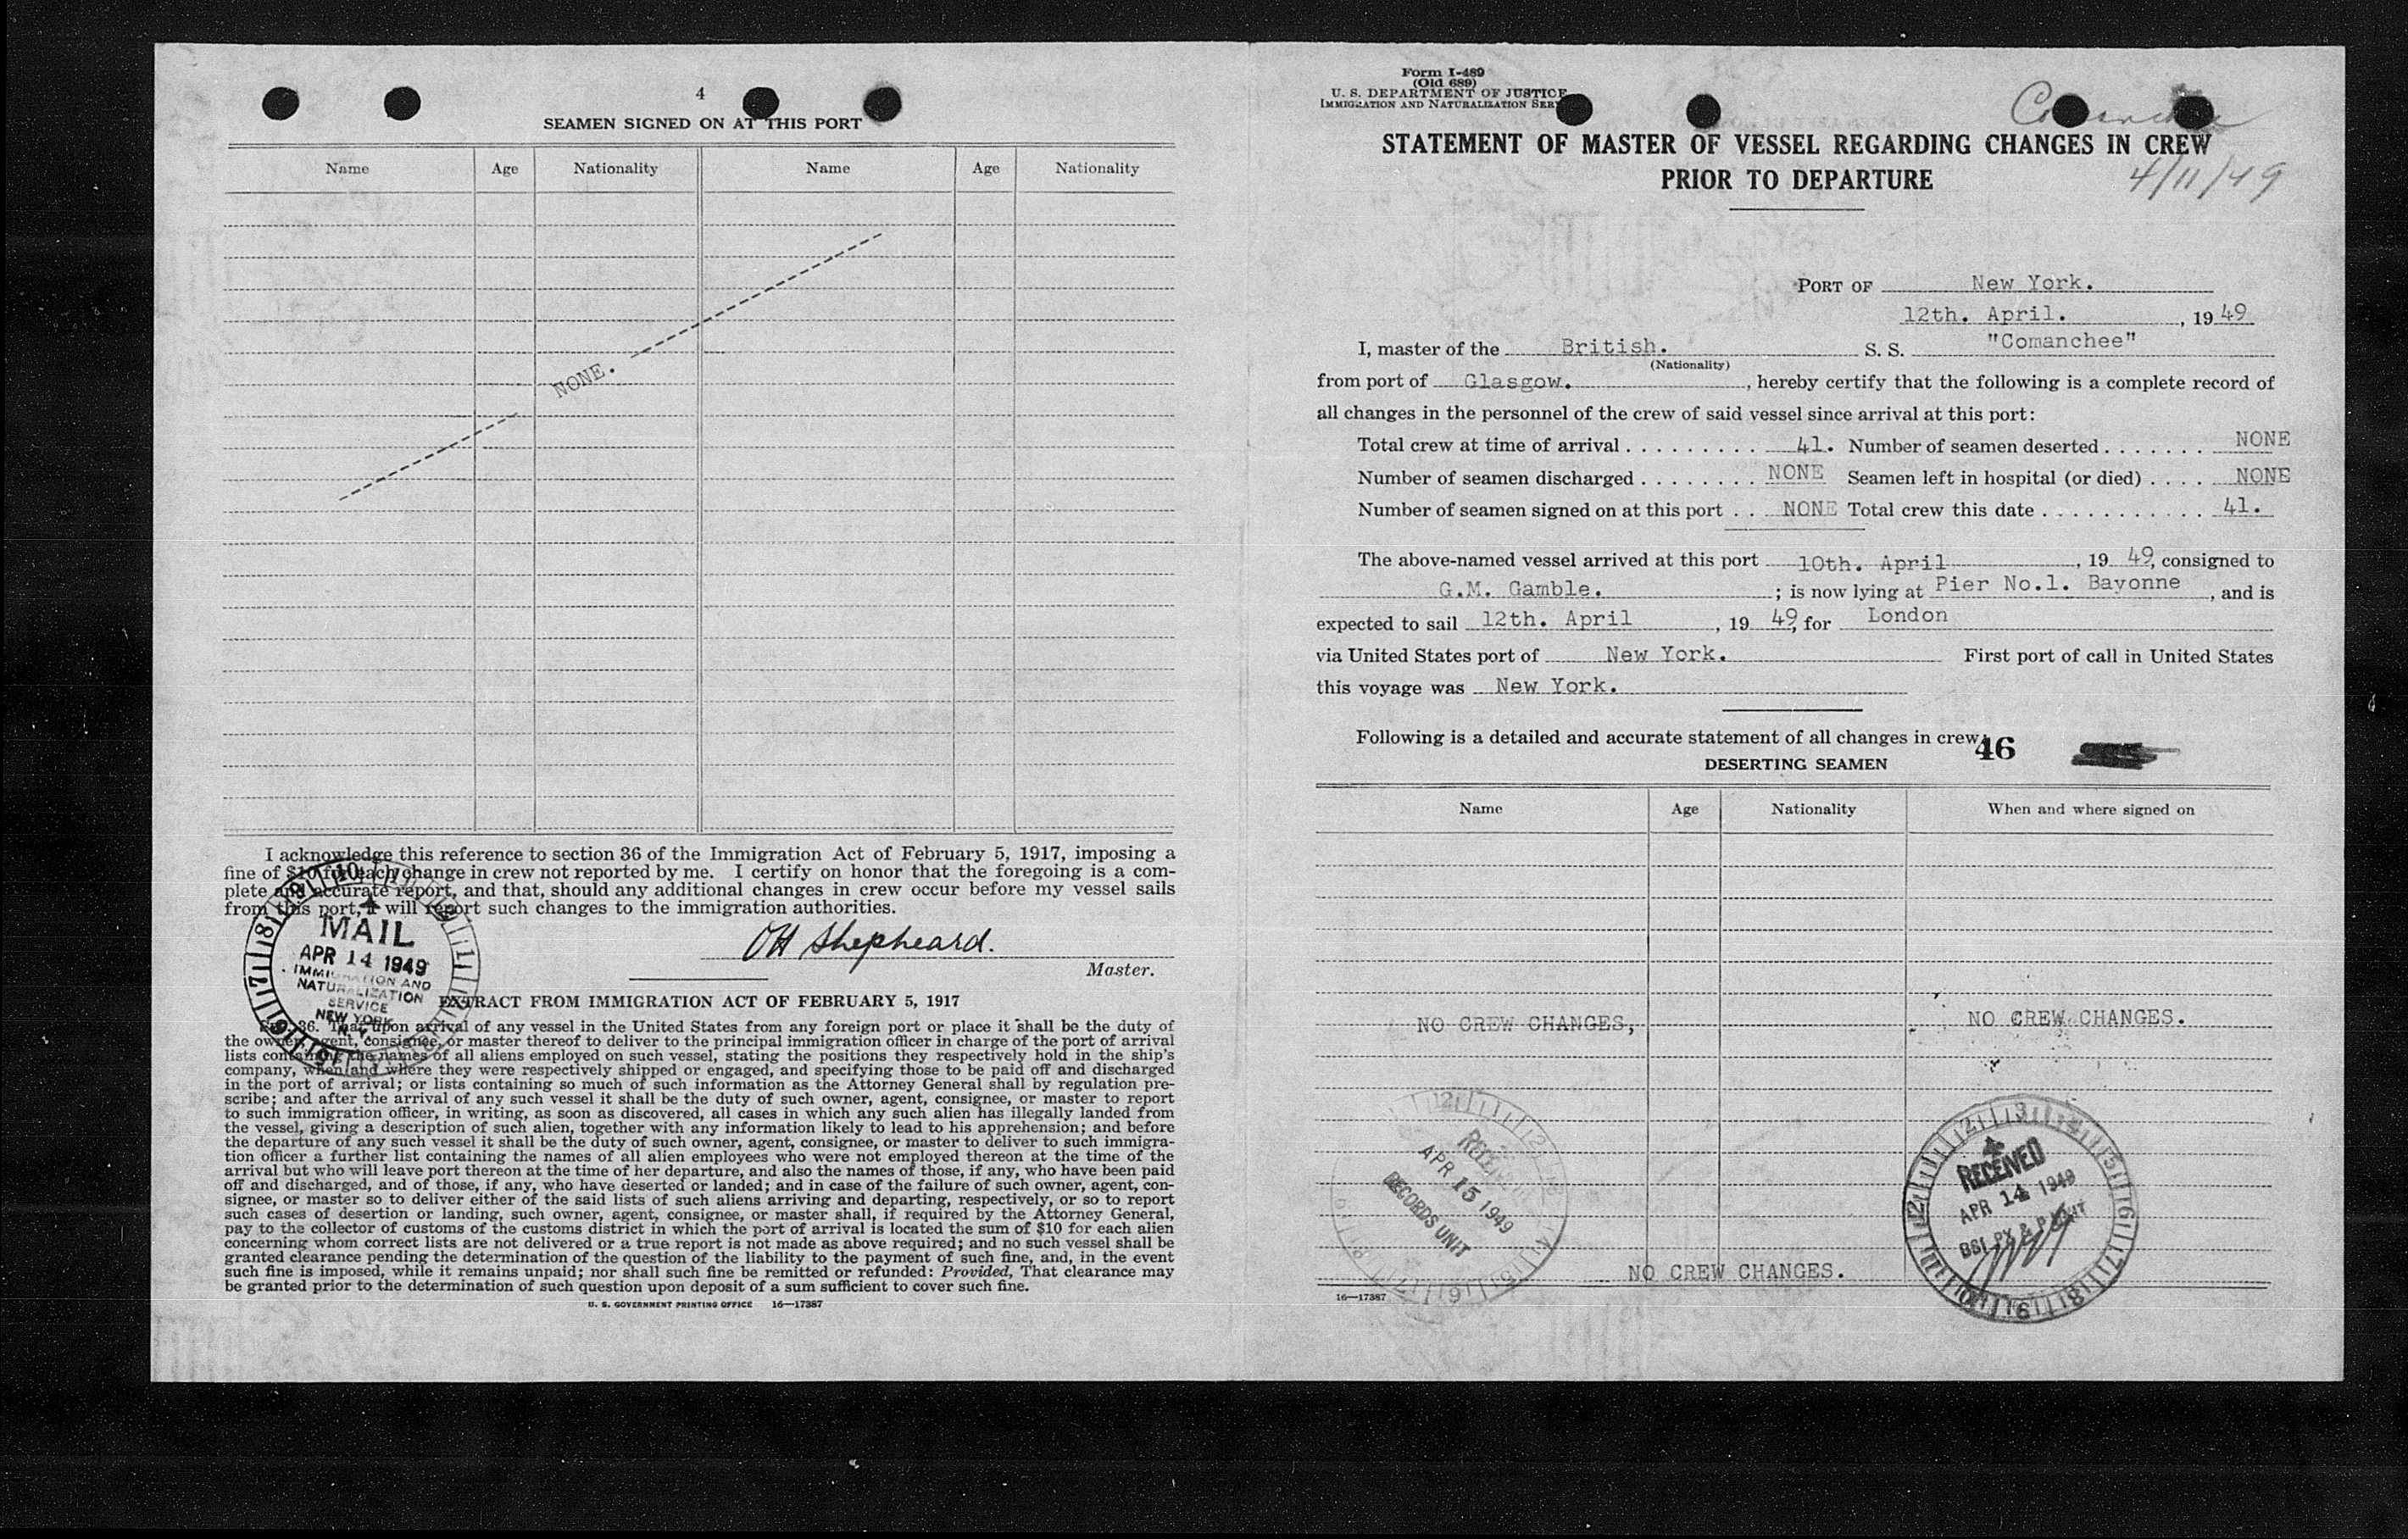 4
SEAMEN SIGNED ON AT THIS PORT
Name Age Nationality Name Age Nationality
NONE.
I acknowledge this reference to section 36 of the Immigration Act of February 5, 1917, imposing a
fine of $10 for each change in crew not reported by me. I certify on honor that the foregoing is a com-
plete and accurate report, and that, should any additional changes in crew occur before my vessel sails
from this port, I will report such changes to the immigration authorities.
OH Shepheard.
Master.
MAIL
APR 14 1949
IMMIGRATION AND
NATURALIZATION
SERVICE
NEW YORK
EXTRACT FROM IMMIGRATION ACT OF FEBRUARY 5, 1917
Sec. 36. That upon arrival of any vessel in the United States from any foreign port or place it shall be the duty of
the owner, agent, consignee, or master thereof to deliver to the principal immigration officer in charge of the port of arrival
lists containing the names of all aliens employed on such vessel, stating the positions they respectively hold in the ship's
company, when and where they were respectively shipped or engaged, and specifying those to be paid off and discharged
in the port of arrival; or lists containing so much of such information as the Attorney General shall by regulation pre-
scribe; and after the arrival of any such vessel it shall be the duty of such owner, agent, consignee, or master to report
to such immigration officer, in writing, as soon as discovered, all cases in which any such alien has illegally landed from
the vessel, giving a description of such alien, together with any information likely to lead to his apprehension; and before
the departure of any such vessel it shall be the duty of such owner, agent, consignee, or master to deliver to such immigra-
tion officer a further list containing the names of all alien employees who were not employed thereon at the time of the
arrival but who will leave port thereon at the time of her departure, and also the names of those, if any, who have been paid
off and discharged, and of those, if any, who have deserted or landed; and in case of the failure of such owner, agent, con-
signee, or master so to deliver either of the said lists of such aliens arriving and departing, respectively, or so to report
such cases of desertion or landing, such owner, agent, consignee, or master shall, if required by the Attorney General,
pay to the collector of customs of the customs district in which the port of arrival is located the sum of $10 for each alien
concerning whom correct lists are not delivered or a true report is not made as above required; and no such vessel shall be
granted clearance pending the determination of the question of the liability to the payment of such fine, and, in the event
such fine is imposed, while it remains unpaid; nor shall such fine be remitted or refunded: Provided, That clearance may
be granted prior to the determination of such question upon deposit of a sum sufficient to cover such fine.
U. S. GOVERNMENT PRINTING OFFICE 16—17387
Form I-489
(Old 689)
U. S. DEPARTMENT OF JUSTICE
IMMIGRATION AND NATURALIZATION
STATEMENT OF MASTER OF VESSEL REGARDING CHANGES IN CREW
PRIOR TO DEPARTURE
4/11/49
PORT OF New York.
12th. April. , 19 49
I, master of the British. S. S. "Comanchee"
(Nationality)
from port of Glasgow. , hereby certify that the following is a complete record of
all changes in the personnel of the crew of said vessel since arrival at this port:
Total crew at time of arrival . . . . . . . . . 41. Number of seamen deserted . . . . . . . NONE
Number of seamen discharged . . . . . . . . NONE Seamen left in hospital (or died) . . . . NONE
Number of seamen signed on at this port . . NONE Total crew this date . . . . . . . . . . . 41.
The above-named vessel arrived at this port 10th. April , 19 49, consigned to
G.M. Gamble. ; is now lying at Pier No.1. Bayonne , and is
expected to sail 12th. April , 19 49, for London
via United States port of New York. First port of call in United States
this voyage was New York.
Following is a detailed and accurate statement of all changes in crew:
46
DESERTING SEAMEN
Name Age Nationality When and where signed on
NO CREW CHANGES, NO CREW CHANGES.
RECEIVED
APR 15 1949
RECORDS UNIT
RECEIVED
APR 14 1949
NO CREW CHANGES.
16—17387